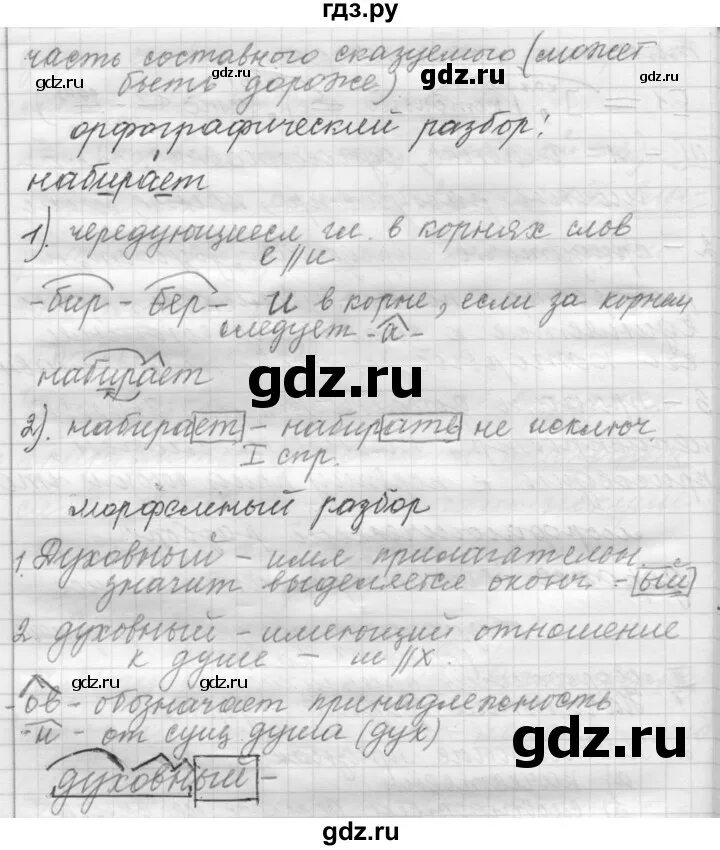 гдз.ру
часть составного сказуемого (может
быть дороже)
орфографический разбор:
набирает
1). чередующиеся гл. в корнях слов
е//и
-бир- -бер- и в корне, если за корнем
следует -а-
набирает
2). набирает - набирать не исключ.
I спр.
морфемный разбор
1. Духовный - имя прилагательн.
значит выделяется оконч. -ый
2. духовный - имеющий отношение
к душе - ш//х.
-ов- - обозначает принадлежность
-н- - от сущ душа (дух)
духовный -
gdz.ru
gdz.ru
gdz.ru
gdz.ru
gdz.ru
gdz.ru
gdz.ru
gdz.ru
gdz.ru
gdz.ru
gdz.ru
gdz.ru
gdz.ru
gdz.ru